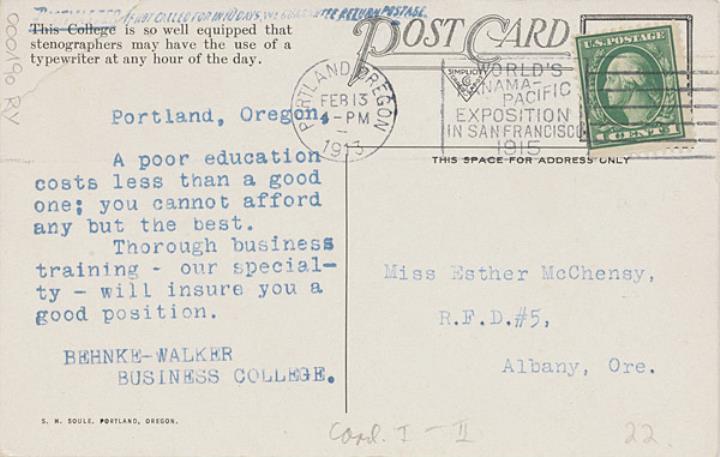 IF NOT CALLED FOR IN 10 DAYS, WE GUARANTEE RETURN POSTAGE.
This College is so well equipped that
stenographers may have the use of a
typewriter at any hour of the day.
000190 RY
Portland, Oregon,
A poor education
costs less than a good
one; you cannot afford
any but the best.
Thorough business
training - our special-
ty - will insure you a
good position.
BEHNKE-WALKER
BUSINESS COLLEGE.
S. H. SOULE, PORTLAND, OREGON.
POST CARD
SIMPLICITY
PORTLAND, OREGON
FEB 13
4-PM
1913
WORLD'S
PANAMA-
PACIFIC
EXPOSITION
IN SAN FRANCISCO
1915
U.S. POSTAGE
1 CENT 1
THIS SPACE FOR ADDRESS ONLY
Miss Esther McChensy,
R.F.D.#5,
Albany, Ore.
Card. I - II
22.